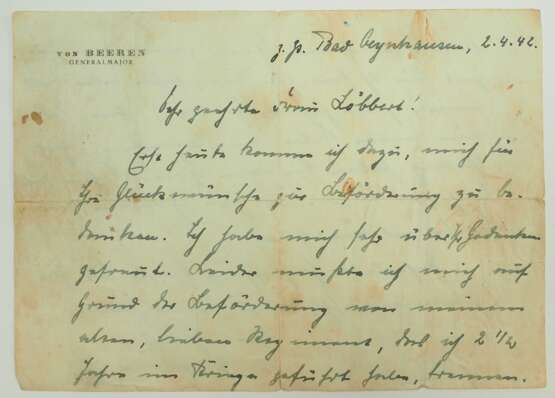 VON BEEREN
GENERALMAJOR
z. Zt. Bad Oeynhausen, 2.4.42.
Sehr geehrte Frau Löbbert!
Erst heute komme ich dazu, mich für
Ihre Glückwünsche zur Beförderung zu be-
danken. Ich habe mich sehr über Ihr Gedenken
gefreut. Leider mußte ich mich auf
Grund der Beförderung von meinem
alten, lieben Regiment, das ich 2 1/2
Jahre im Kriege geführt habe, trennen.